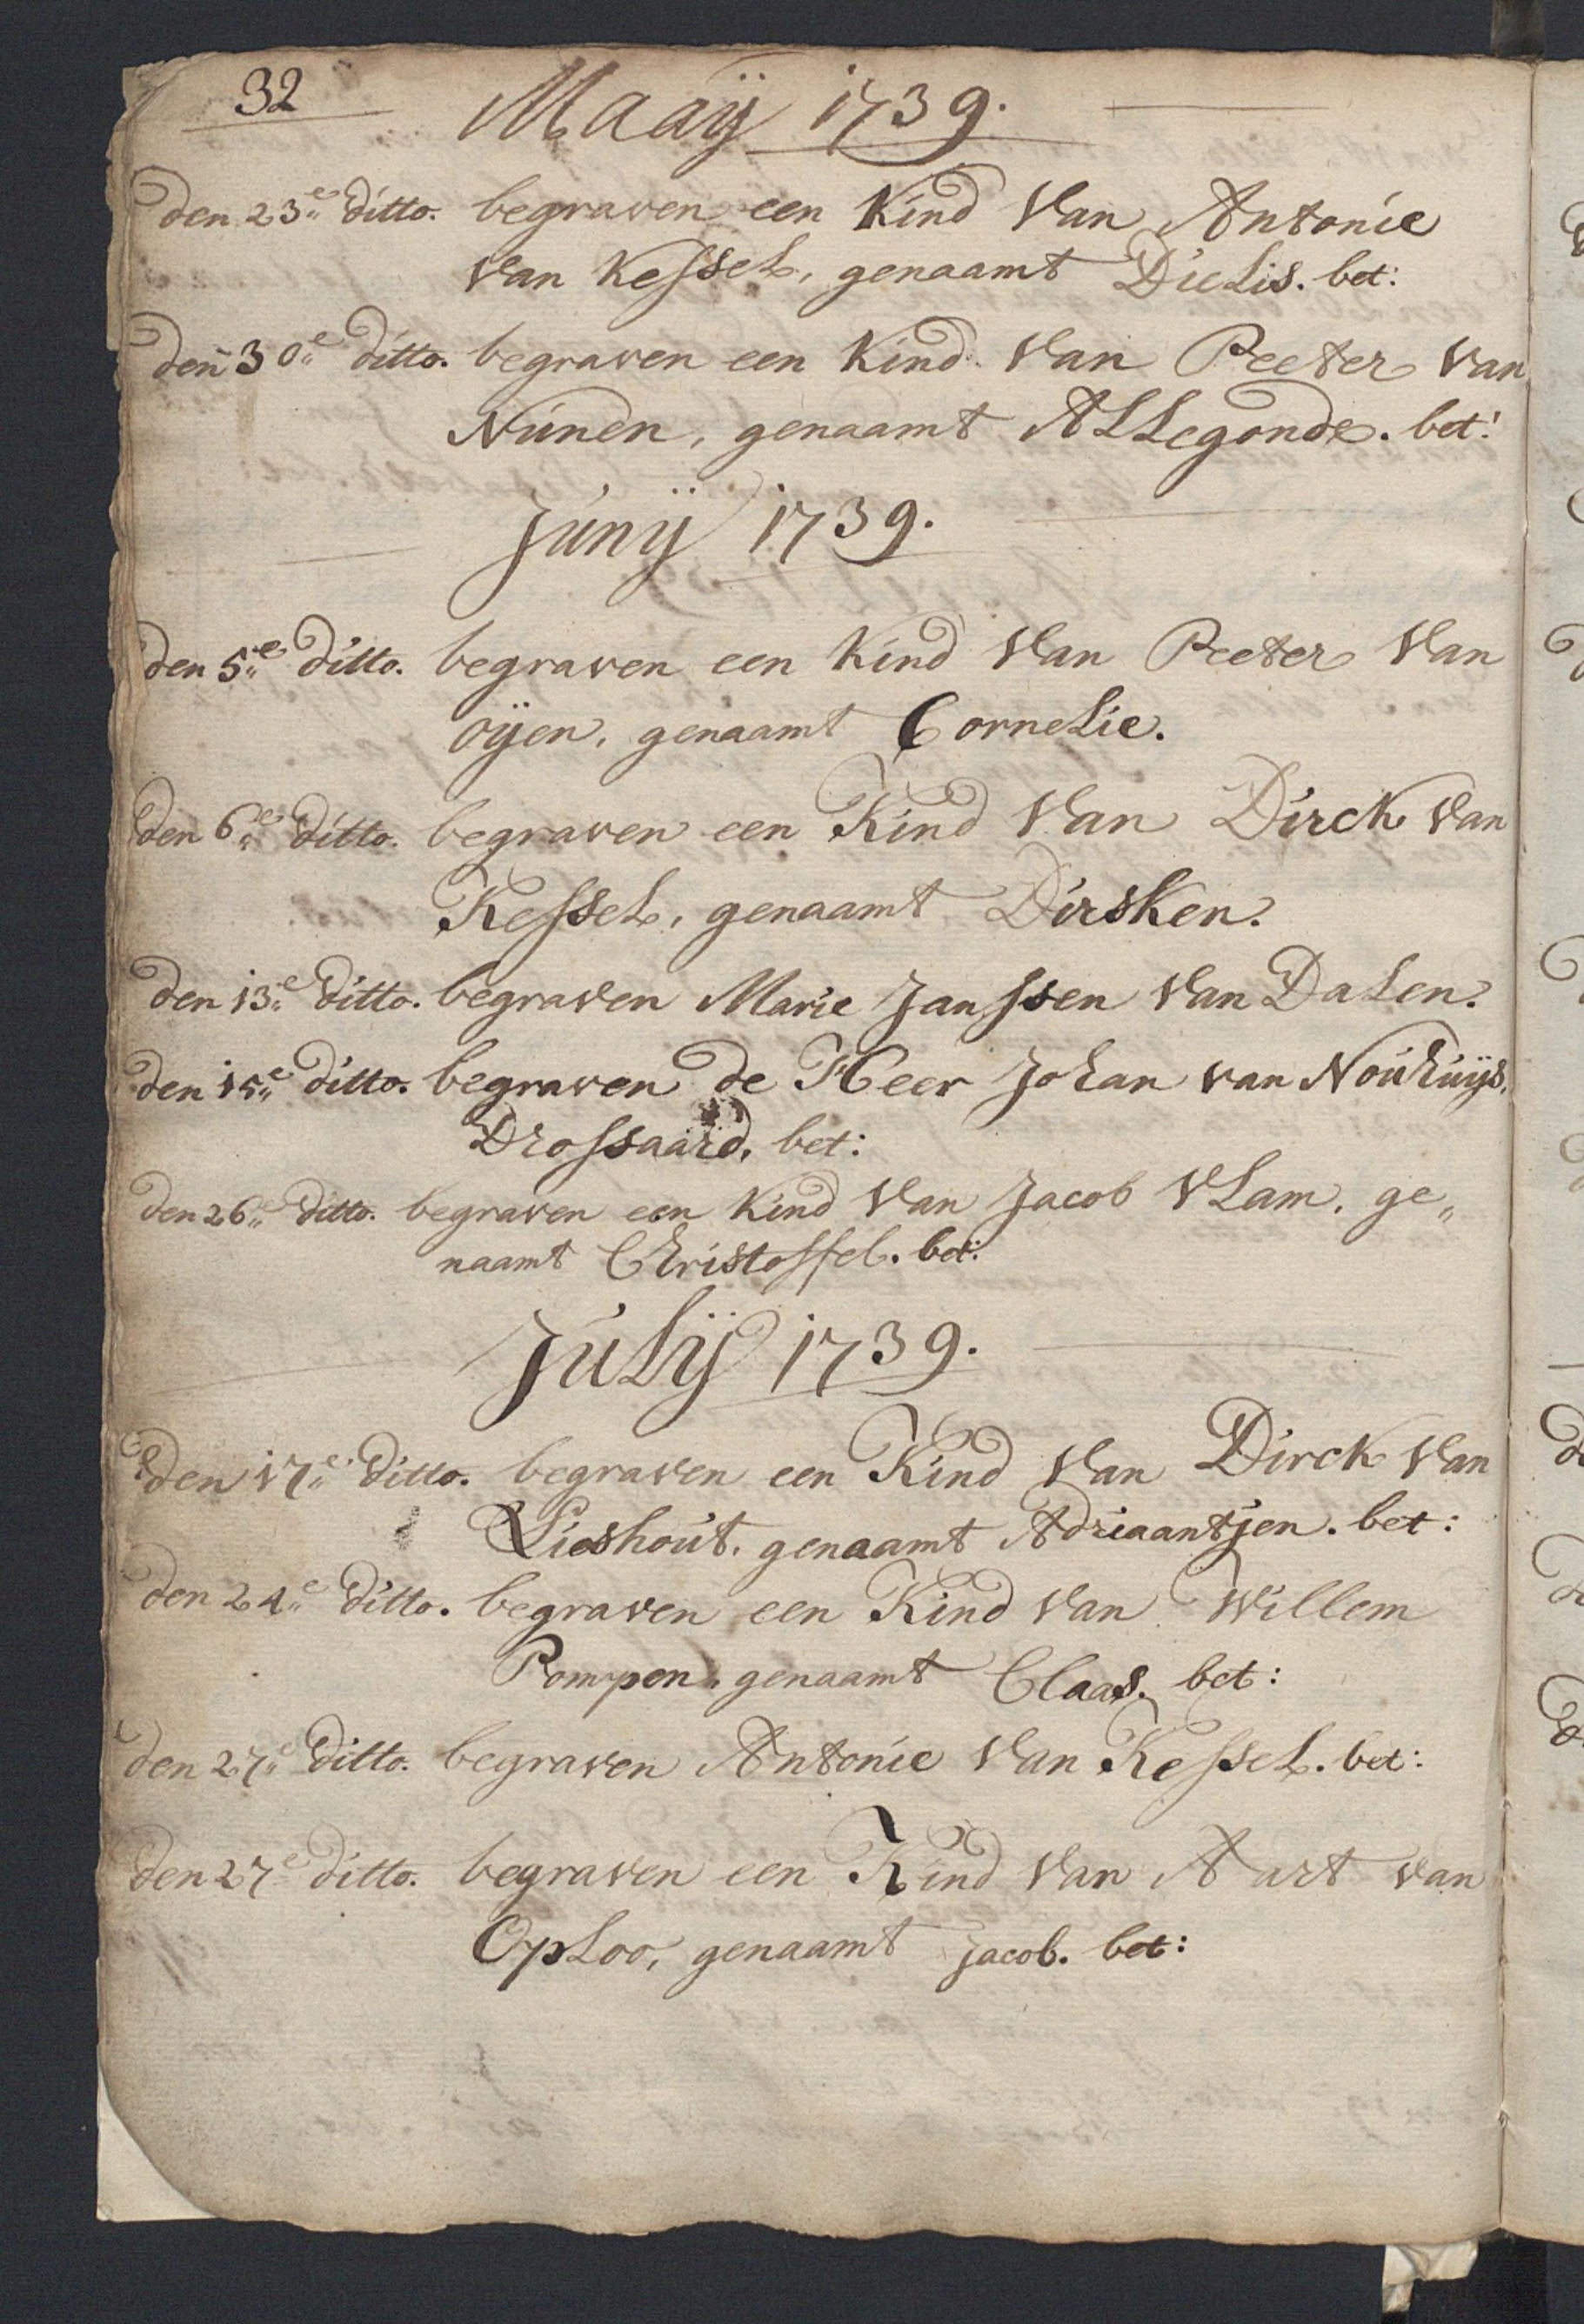 32
Maaÿ 1739.
den 23e ditto. begraven een Kind Van Antonie
Van Kessel, genaamt Dielis. bet:
den 30e ditto. begraven een Kind Van Peeter Van
Nunen, genaamt Allegonde. bet:
Junÿ 1739.
den 5e ditto. begraven een Kind Van Peeter Van
oÿen, genaamt Cornelie.
den 6e ditto. begraven een Kind Van Dirck Van
Kessel, genaamt Dirsken.
den 13e ditto. begraven Marie Janssen Van Dalen.
den 15e ditto. begraven de Heer Johan van Nouhuÿs,
Drossaard, bet:
den 26e ditto. begraven een Kind Van Jacob Vlam, ge„
naamt Christoffel. bet:
Julÿ 1739.
den 17e ditto. begraven een Kind Van Dirck Van
Lieshout, genaamt Adriaantjen. bet:
den 24e ditto. begraven een Kind Van Willem
Pompen, genaamt Claas. bet:
den 27e ditto. begraven Antonie Van Kessel. bet:
den 27e ditto. begraven een Kind Van Aart van
Oploo, genaamt Jacob. bet: